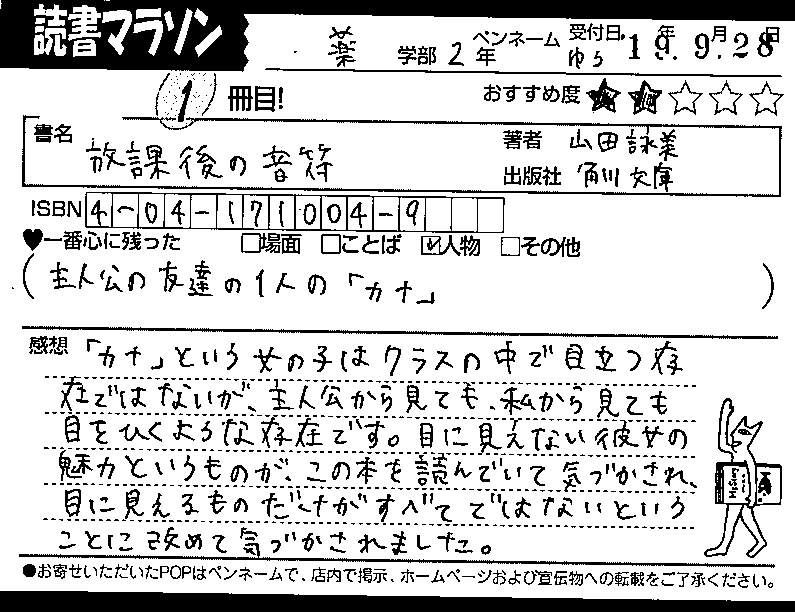 読書マラソン
薬 学部 2年 ペンネーム ゆう 受付日 19年 9月 28日
1 冊目! おすすめ度 ★★☆☆☆
書名 放課後の音符 著者 山田詠美
出版社 角川文庫
ISBN 4-04-171004-9
♥一番心に残った □場面 □ことば ☑人物 □その他
(主人公の友達の1人の「カナ」)
感想 「カナ」という女の子はクラスの中で目立つ存
在ではないが、主人公から見ても、私から見ても
目をひくような存在です。目に見えない彼女の
魅力というものが、この本を読んでいて気づかされ、
目に見えるものだけがすべてではないという
ことに改めて気づかされました。
●お寄せいただいたPOPはペンネームで、店内で掲示、ホームページおよび宣伝物への転載をご了承ください。